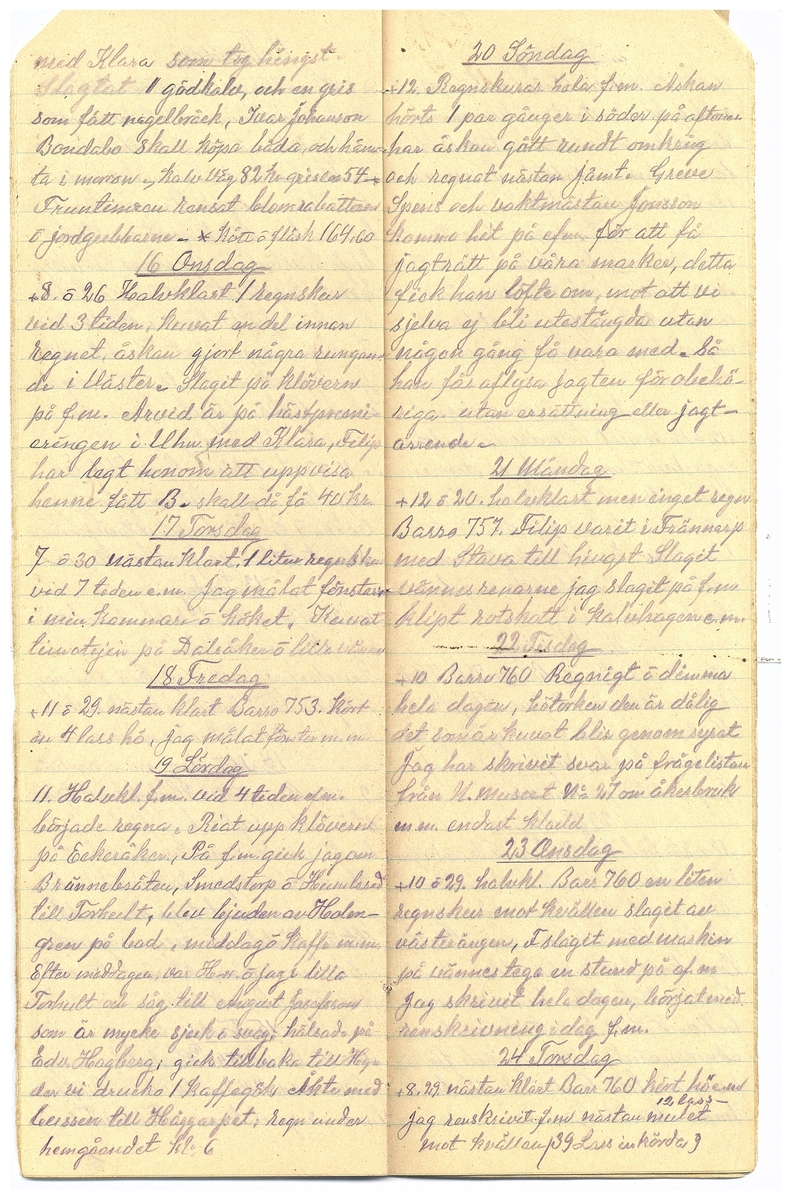 med Klara som tog hingst.
Slagtat 1 gödkalv, och en gris
som fått nagelbråck, Ivar Johanson
Bondabo skall köpa båda, och häm-
ta i morron, kalv väg 82 kr grisen 54
Fruntimren rensat blomrabatten
ö jordgubbarne. x Kött ö fläsk 164.60
16 Onsdag
+8. ö 26 Halvklart 1 regnskur
vid 3 tiden, kuvat en del innan
regnet, åskan gjort några rungan-
de i Väster. Slagit på klövern
på f.m. Arvid är på hästpremi-
eringen i Uhu med Klara, Filip
har legt honom att uppvisa
henne fått B. skall då få 40 kr.
17 Torsdag
7 ö 30 nästan klart, 1 liten regnskur
vid 7 tiden e.m. Jag målat fönster
i min kammare ö köket, Kuvat
på Dalsåker ö lilla
18 Fredag
+11 ö 29. nästan klart Barro 753. Kört
in 4 lass hö, jag målat fönster m.m
19 Lördag
11. Halvkl. f.m. vid 4 tiden e.m.
började regna. Riat upp klövern
på Eekeråker, På f.m. gick jag om
Brännebråten, Smedstorp ö
till Torhult, blev bjuden av Holm-
gren på bad, middag ö kaffe m.m.
Efter middagen var H-n. ö jag i lilla
Torhult och såg till August Jacobsson
som är mycke sjuk ö svag; hälsade på
Edv. Hagberg; gick tillbaka till
der vi drucko 1 kaffegök Åkte med
bussen till Häggarpet; regn under
hemgåendet kl. 6
20 Söndag
+12. Regnskurar hela f.m. Åskan
hörts 1 par gånger i söder på aftonen
har åskan gått rundt omkring
och regnat nästan jämt. Greve
Spens och vaktmästan Jonsson
komma hit på efm. för att få
jagträtt på våra marker, detta
fick han löfte om, mot att vi
sjelva ej bli utestängda utan
någon gång få vara med. Så
han får aflysa jagten för obehö-
riga. utan ersättning eller jagt-
arrende.
21 Måndag
+12 ö 20. halvklart men inget regn
Barro 757. Filip varit i Trännarp
med Stava till hingst Slagit
vännesrenarne jag slaget på f.m
klipt rotskott i kalvhagen e.m.
22 Tisdag
+10 Barro 760 Regnigt ö dimma
hela dagen, hötorken den är dålig
det som är kuvat blir genomsyrat
Jag har skrivit svar på frågelistan
från N. museet No 27 om åkerbruk
m.m. endast kladd
23 Onsdag
+10 ö 29. halvkl. Barr 760 en liten
regnskur mot kvällen slaget av
västerängen, F slaget med maskin
på vännestega en stund på ef.m
Jag skrivit hela dagen, börjat med
renskrivning idag f.m.
24 Torsdag
+8.29 nästan klart Barr 760 kört hö e.m
12 lass-
jag renskrivit f.m nästan mulet
mot kvällen / 39 Lass inkörda